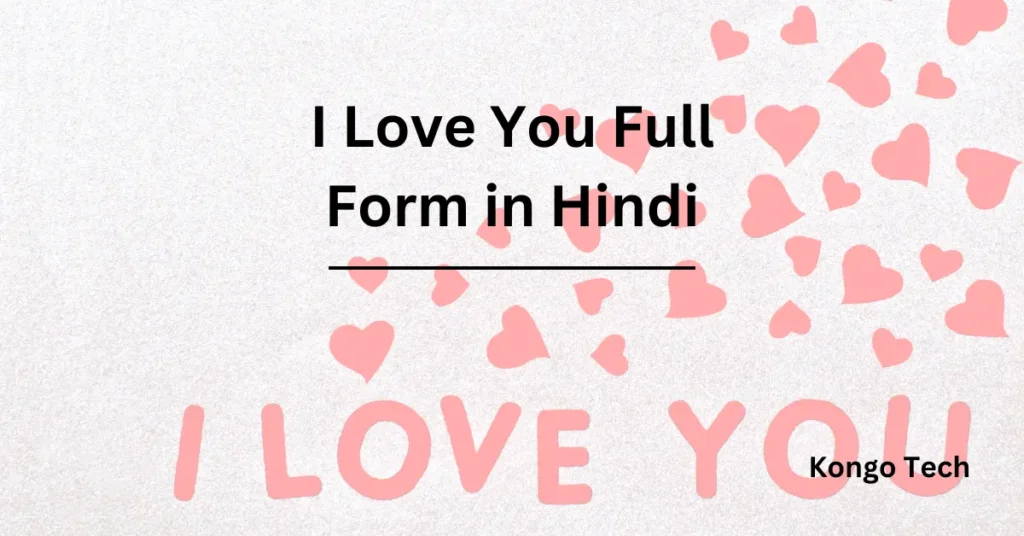 I Love You Full
Form in Hindi
I LOVE YOU
Kongo Tech